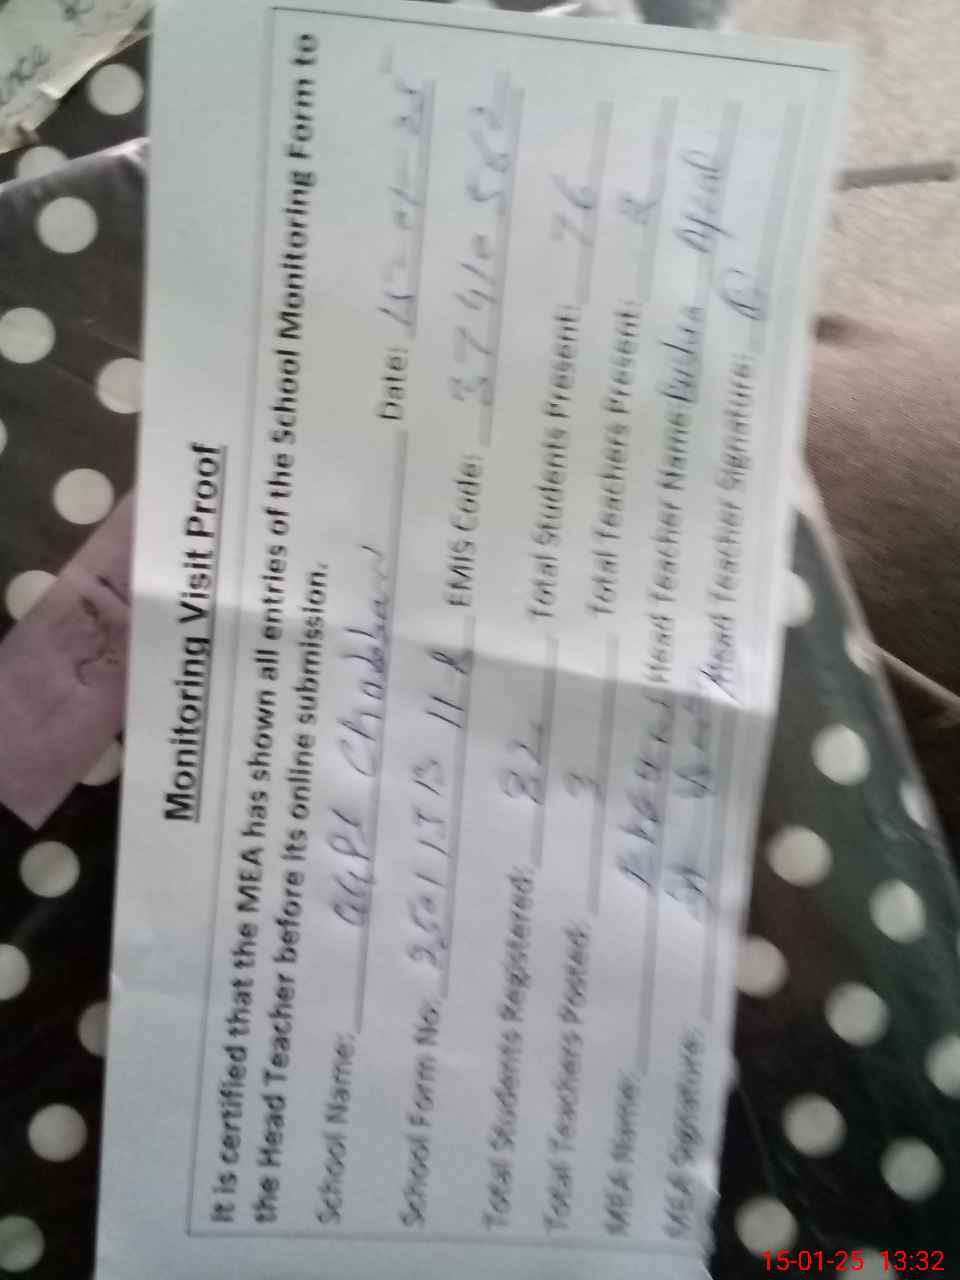 Monitoring Visit Proof
It is certified that the MEA has shown all entries of the School Monitoring Form to
the Head Teacher before its online submission.
School Name: GGPS Date: 15-01-25
School Form No: EMIS Code: 37410562
Total Students Registered: 82 Total Students Present: 76
Total Teachers Posted: 3 Total Teachers Present: 2
MEA Name: Head Teacher Name:
MEA Signature: Head Teacher Signature:
15-01-25 13:32